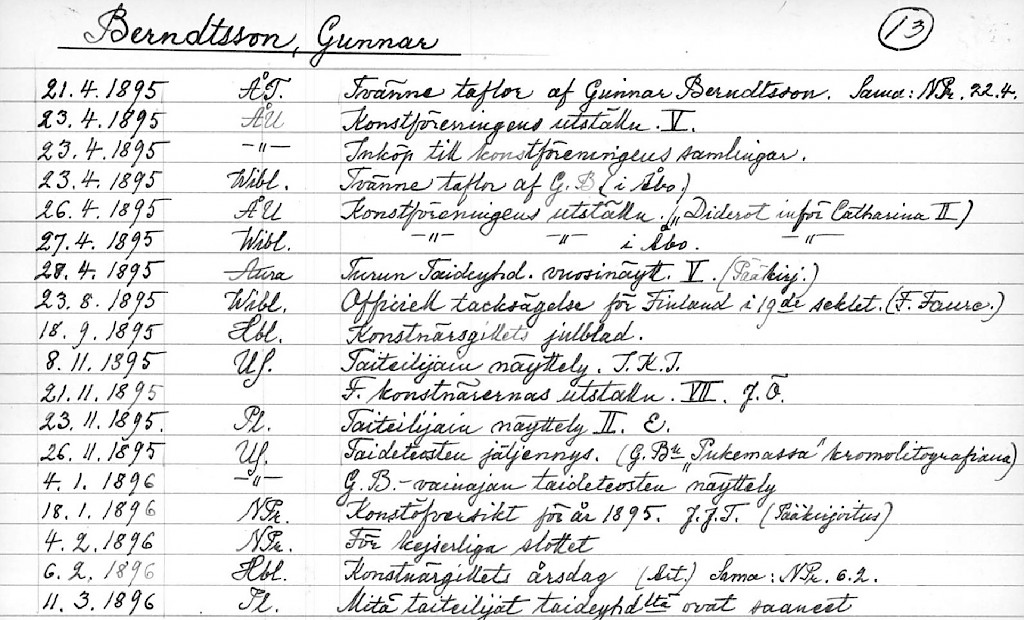 Berndtsson, Gunnar 13
21.4.1895 ÅT. Tvänne taflor af Gunnar Berndtsson. Sama: NPr. 22.4.
23.4.1895 ÅU Konstföreningens utställn. V.
23.4.1895 –"– Inköp till konstföreningens samlingar.
23.4.1895 Wibl. Tvänne taflor af G.B (i Åbo)
26.4.1895 ÅU Konstföreningens utställn. („Diderot inför Catharina II)
27.4.1895 Wibl. –"– –"– i Åbo. –"–
28.4.1895 Aura Turun Taideyhd. vuosinäytt. V. (Pääkirj.)
23.8.1895 Wibl. Officiell tacksägelse för Finland i 19de seklet. (F. Faure.)
18.9.1895 Hbl. Konstnärsgillets julblad.
8.11.1895 US. Taiteilijain näyttely. T.K.T.
21.11.1895 F. konstnärernas utställn. VII. J.Ö.
23.11.1895. Pl. Taiteilijain näyttely II. E.
26.11.1895 US. Taideteosten jäljennys. (G.B:n „Pukemassa" kromolitografiana)
4.1.1896 –"– G.B.-vainajan taideteosten näyttely
18.1.1896 NPr. Konstöfversikt för år 1895. J.J.T. (Pääkirjoitus)
4.2.1896 NPr. För kejserliga slottet
6.2.1896 Hbl. Konstnärgillets årsdag (Art.) Sama: NPr. 6.2.
11.3.1896 Pl. Mitä taiteilijat taideyhd:ltä ovat saaneet